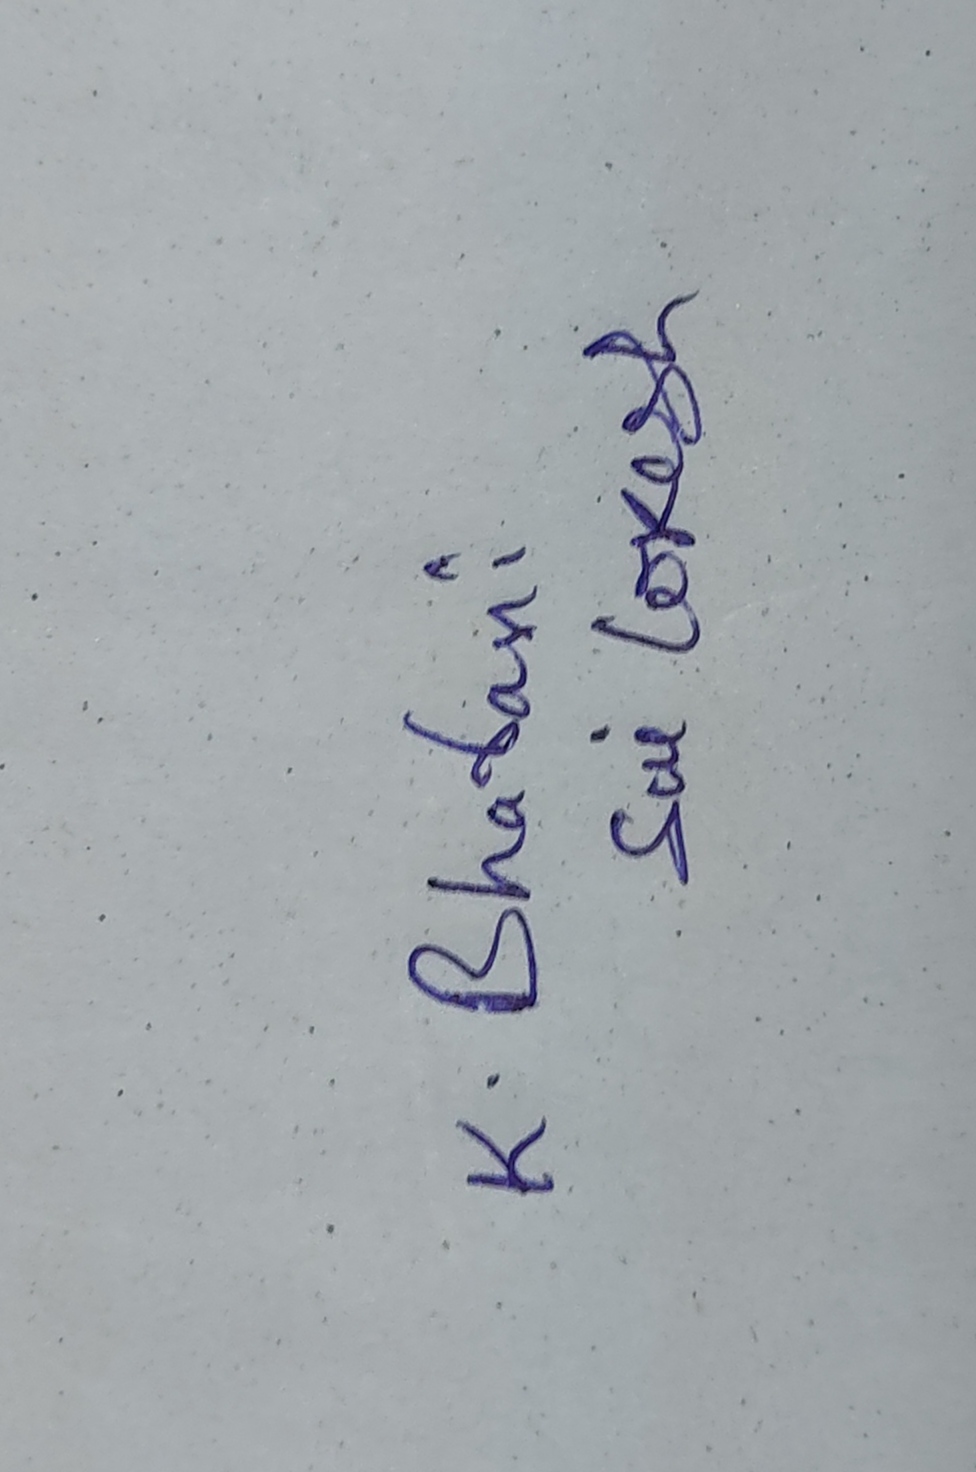 K. Bhavani
Sai Lokesh